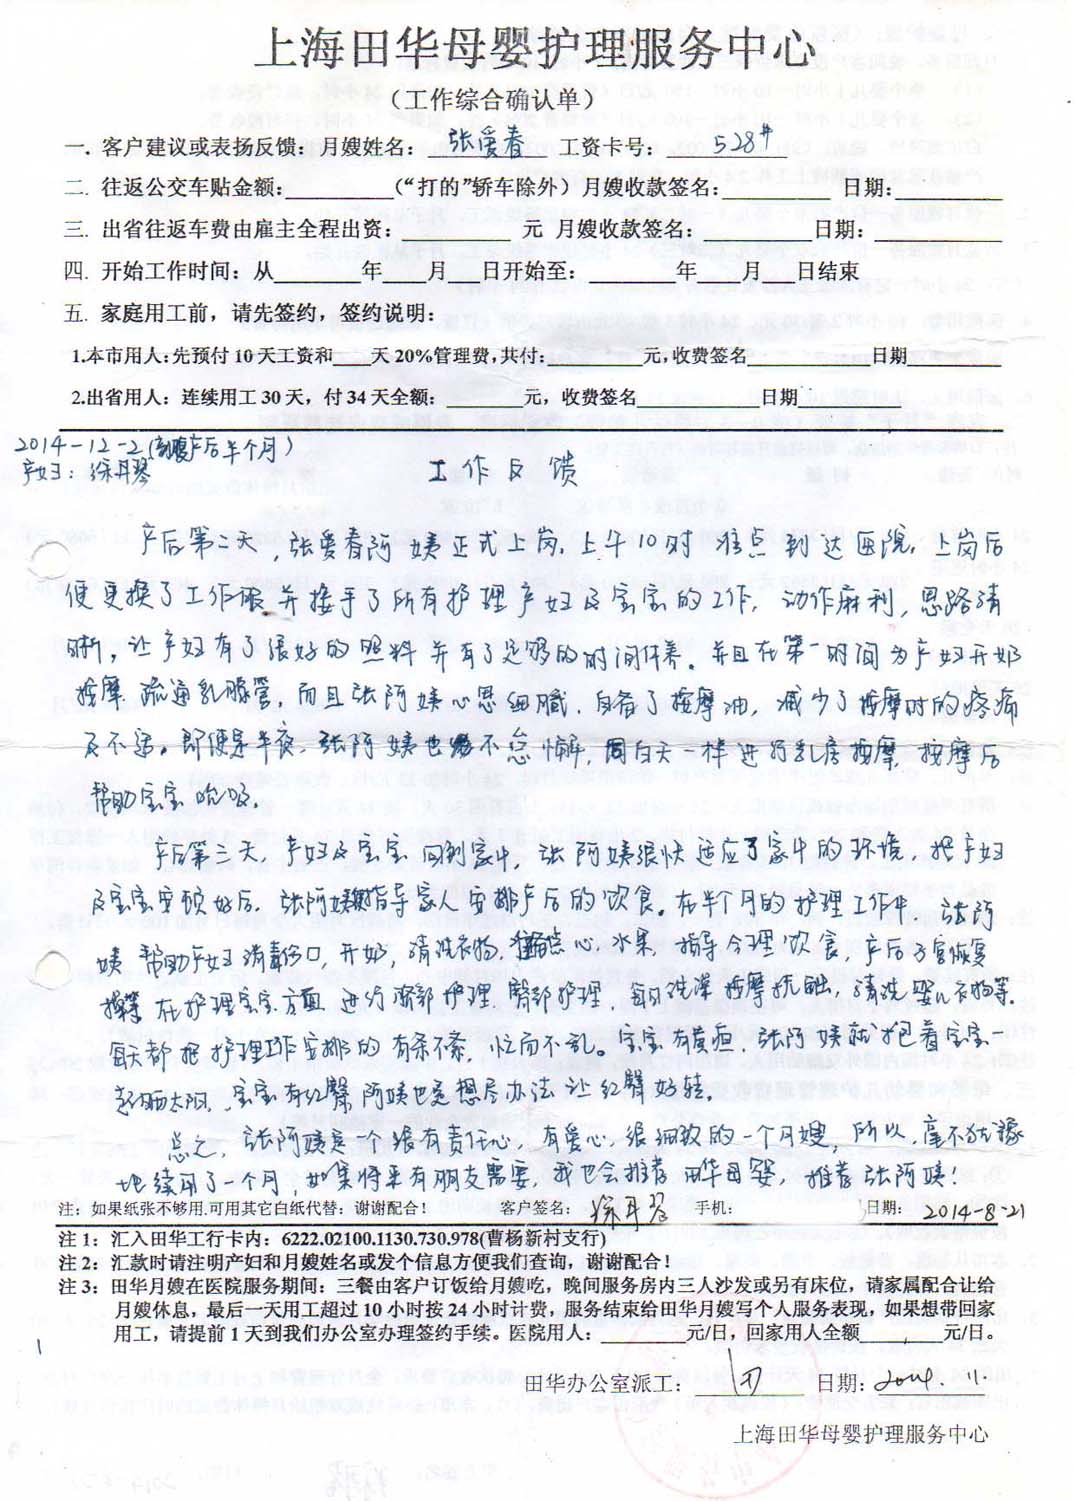 上海田华母婴护理服务中心
(工作综合确认单)
一. 客户建议或表扬反馈: 月嫂姓名: 张爱春 工资卡号: 528#
二. 往返公交车贴金额: (“打的”轿车除外) 月嫂收款签名: 日期:
三. 出省往返车费由雇主全程出资: 元 月嫂收款签名: 日期:
四. 开始工作时间: 从 年 月 日开始至: 年 月 日结束
五. 家庭用工前, 请先签约, 签约说明:
1.本市用人: 先预付10天工资和 天20%管理费, 共付: 元, 收费签名 日期
2.出省用人: 连续用工30天, 付34天全额: 元, 收费签名 日期
2014-12-2 (产后半个月)
产妇: 徐丹琴
工作反馈
产后第二天, 张爱春阿姨正式上岗, 上午10时准点到达医院, 上岗后
便更换了工作服并接手了所有护理产妇及宝宝的工作, 动作麻利, 思路清
晰, 让产妇有了很好的照料并有了足够的时间休养。并且在第一时间为产妇开奶
按摩 疏通乳腺管 而且张阿姨心思细腻, 自备了按摩油, 减少了按摩时的疼痛
及不适。即便是半夜, 张阿姨也不怠懈, 同白天一样进行乳房按摩, 按摩后
帮助宝宝吮吸。
产后第六天, 产妇及宝宝回到家中, 张阿姨很快适应了家中的环境, 把产妇
及宝宝安顿好后, 张阿姨指导家人安排产后的饮食。在半个月的护理工作中, 张阿
姨帮助产妇消毒伤口, 开奶, 清洗衣物, 点心, 水果, 指导合理饮食, 产后子宫恢复
等 在护理宝宝方面, 进行脐部护理, 臀部护理, 每日洗澡按摩抚触, 清洗婴儿衣物等。
每天都把护理工作安排的有条不紊, 忙而不乱。宝宝有黄疸, 张阿姨就抱着宝宝
去晒太阳, 宝宝有红臀 阿姨也是想尽办法让红臀好转。
总之, 张阿姨是一个很有责任心, 有爱心, 很细致的一个月嫂, 所以, 毫不犹豫
地续用了一个月, 如果将来有朋友需要, 我也会推荐田华母婴, 推荐张阿姨
注: 如果纸张不够用.可用其它白纸代替; 谢谢配合! 客户签名: 徐丹琴 手机: 日期: 2014-8-21
注 1: 汇入田华工行卡内: 6222.02100.1130.730.978(曹杨新村支行)
注 2: 汇款时请注明产妇和月嫂姓名或发个信息方便我们查询, 谢谢配合!
注 3: 田华月嫂在医院服务期间: 三餐由客户订饭给月嫂吃, 晚间服务房内三人沙发或另有床位, 请家属配合让给
月嫂休息, 最后一天用工超过10小时按24小时计费, 服务结束给田华月嫂写个人服务表现, 如果想带回家
用工, 请提前1天到我们办公室办理签约手续。医院用人: 元/日, 回家用人全额 元/日。
田华办公室派工: 日期: 2014.
上海田华母婴护理服务中心